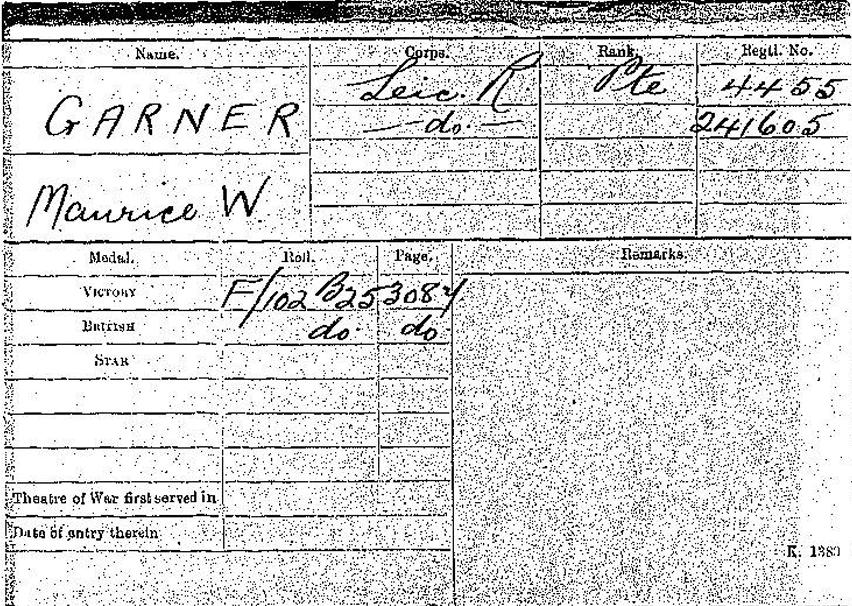 Name. Corps. Rank. Regtl. No.
GARNER Leic. R Pte 4455
— do. — 241605
Maurice W.
Medal. Roll. Page. Remarks.
VICTORY F/102 B25 3084
BRITISH do. do.
STAR
Theatre of War first served in
Date of entry therein
K. 1380